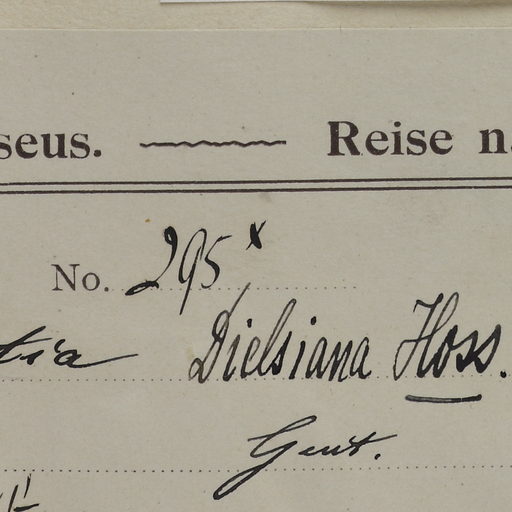 seus. Reise na
No. 295 x
tia Dielsiana Hoss.
Gent.